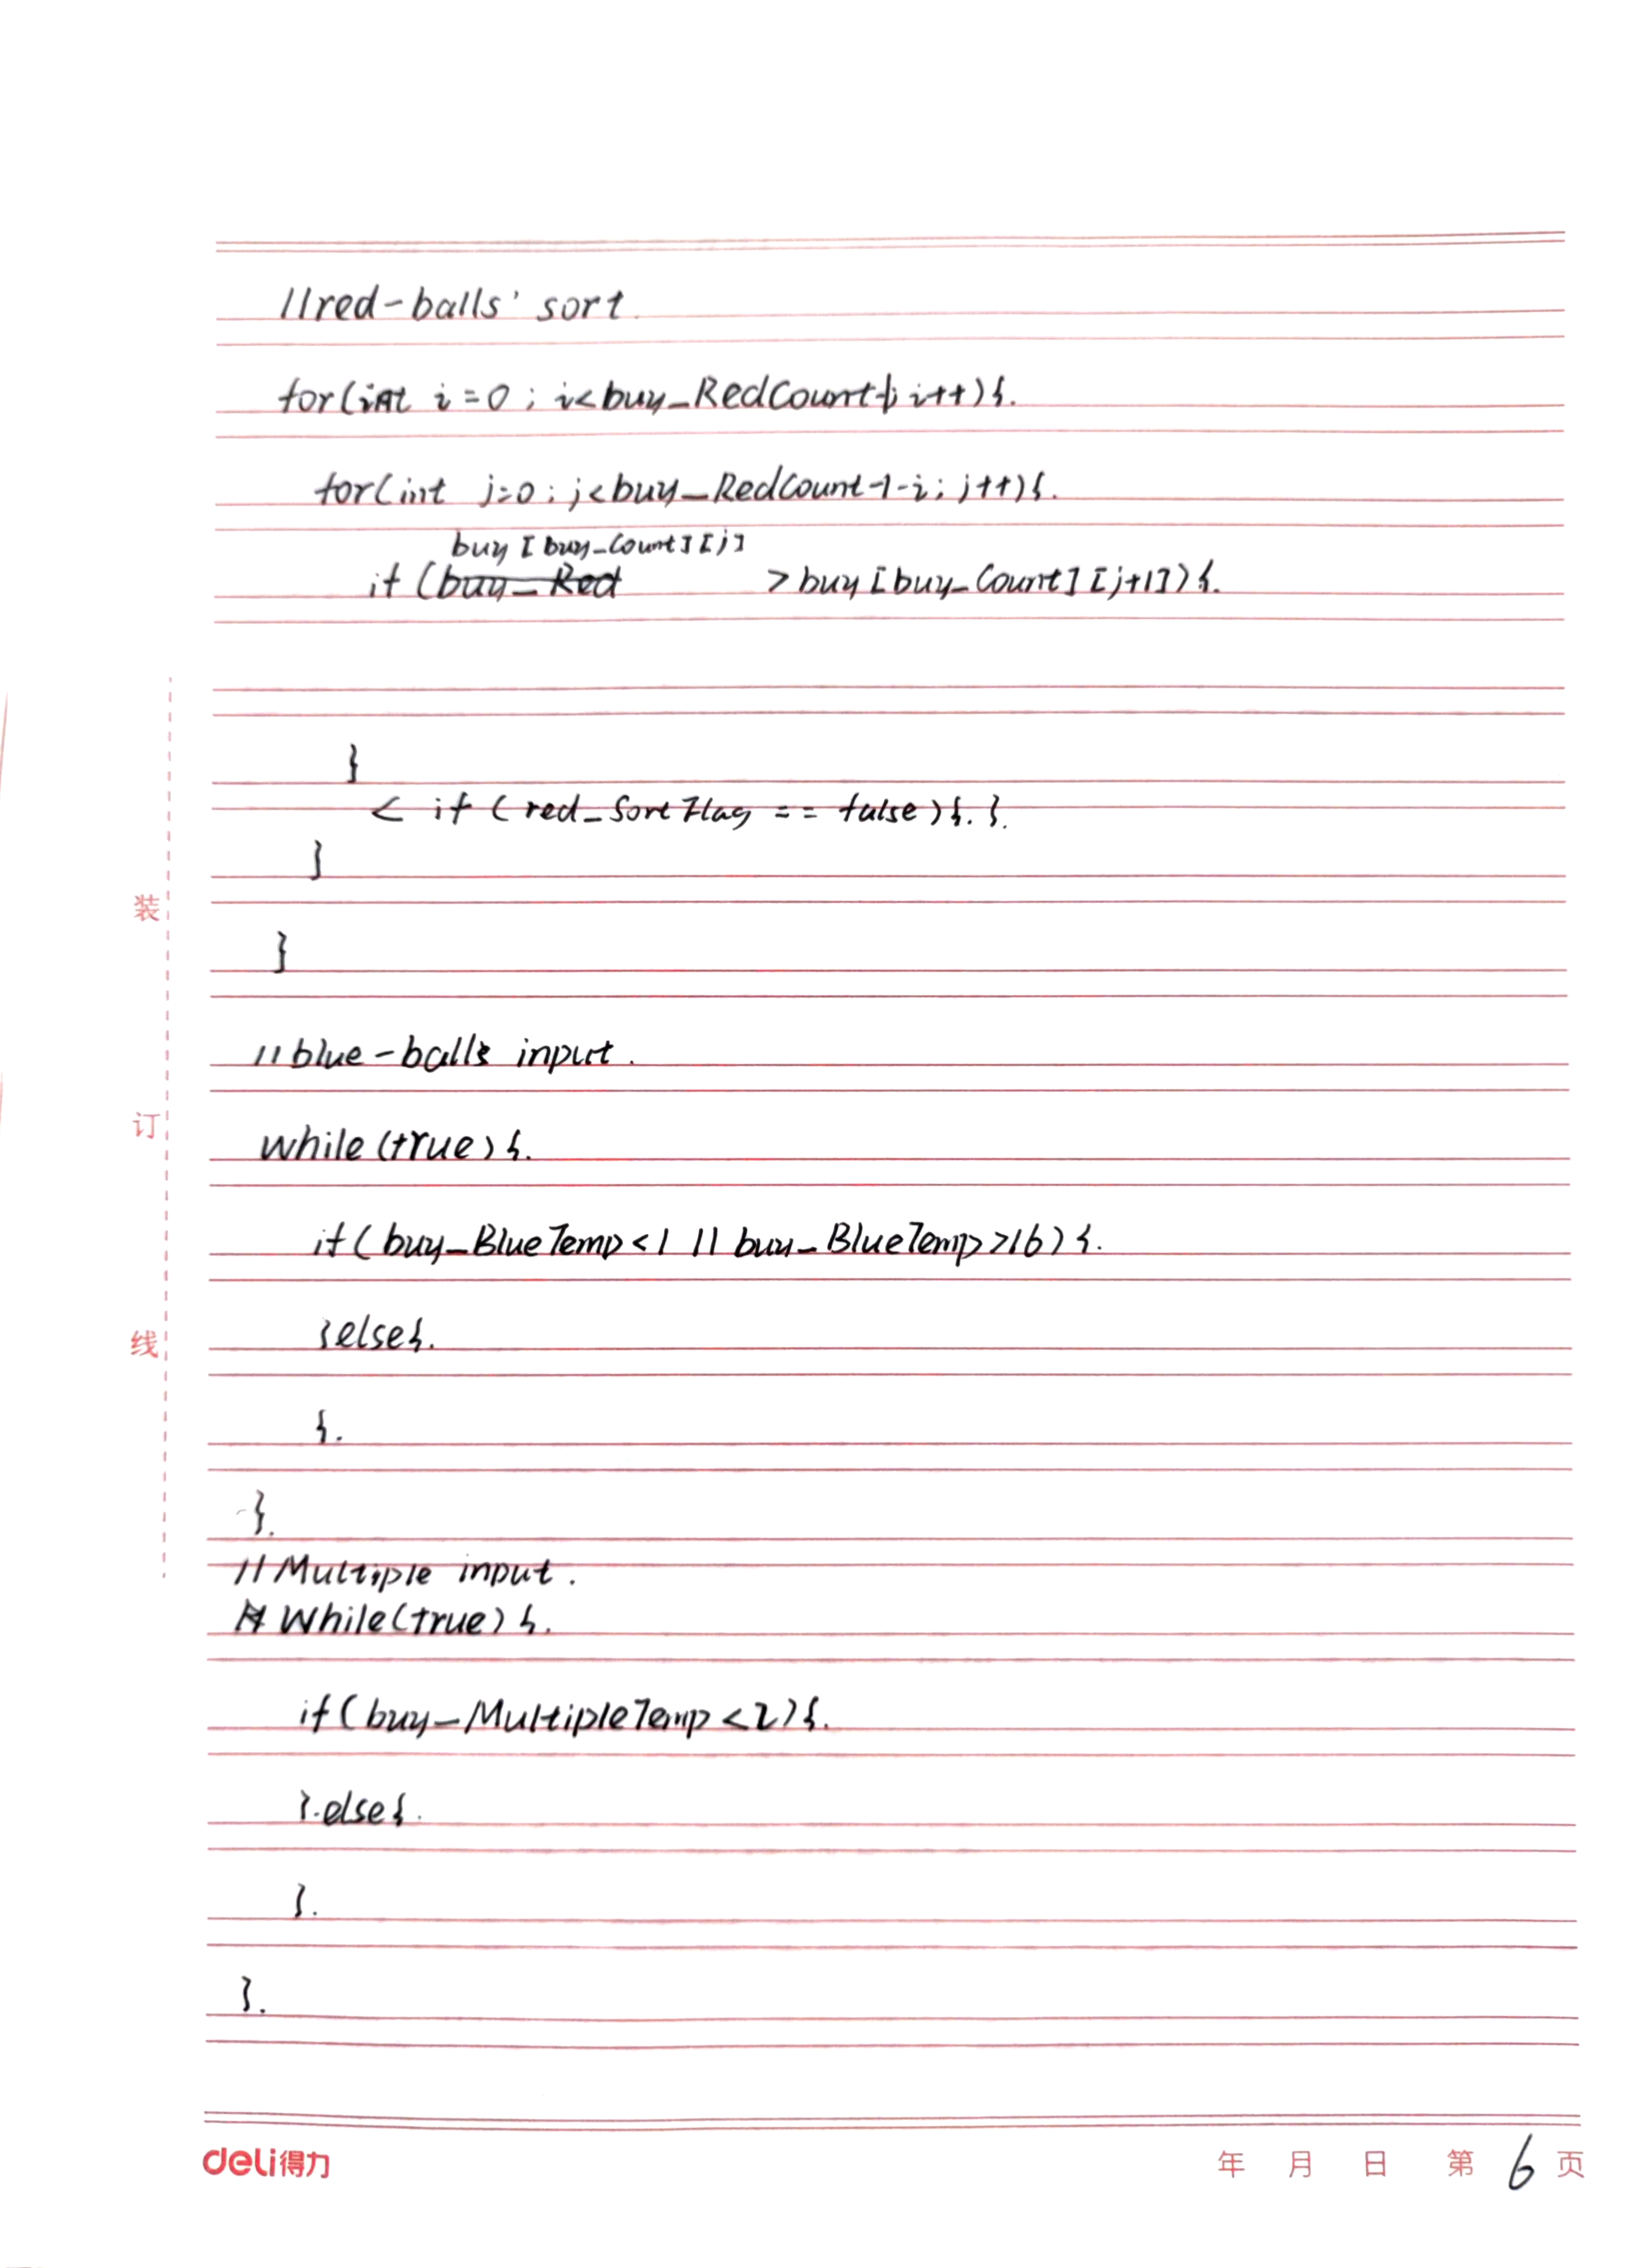 //red-balls' sort.
for(int i=0; i<buy_RedCount-1; i++){.
for(int j=0; j<buy_RedCount-1-i; j++){.
buy[buy_Count][j]
if (buy_Red >buy[buy_Count][j+1]){.
}
< if (red_SortFlag == false){. }.
}
}
//blue-balls input.
while(true){.
if(buy_BlueTemp<1 || buy_BlueTemp>16){.
}else{.
}.
}.
//Multiple input.
While(true){.
if(buy_MultipleTemp<2){.
}.else{.
}.
}.
装
订
线
deli得力
年 月 日 第 6 页